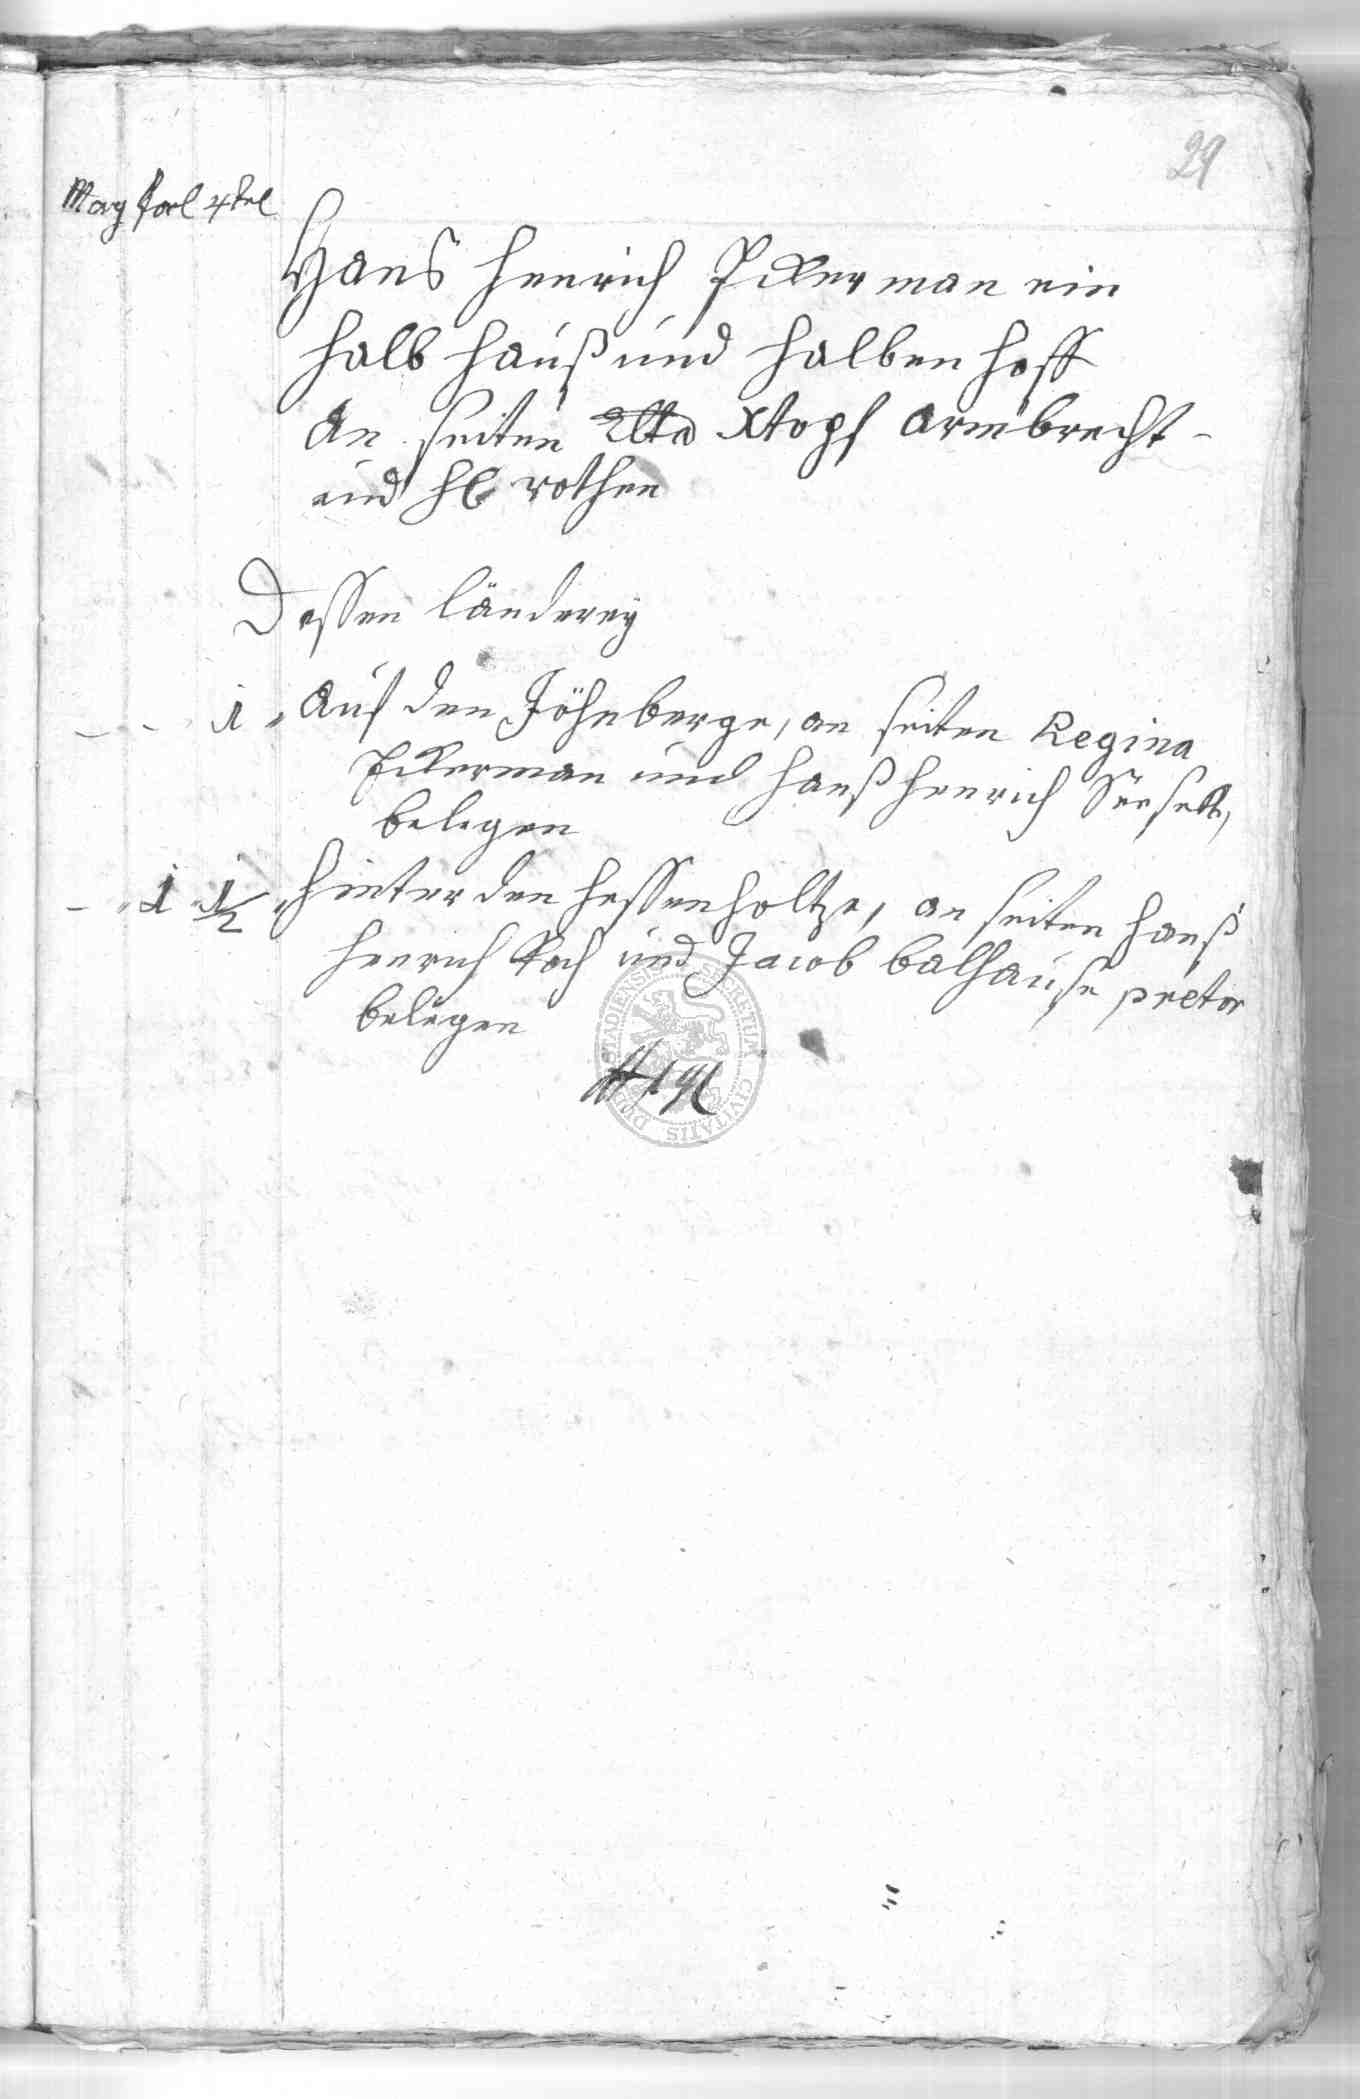 29
Morg forl 4tel
Hans Henrich Ickerman ein
halb hauß und halben hoff
An seiten Xtopf Armbrecht
und HE rothen
Dessen länderey
1 Auf den Föhnberge, an seiten Regina
Ickerman und Hanß Henrich
belegen
1 1/2 Hinter den Hessenholtze, an seiten Hanß
Henrich Koch und Jacob balhause pretor
belegen
SECRETUM CIVITATIS